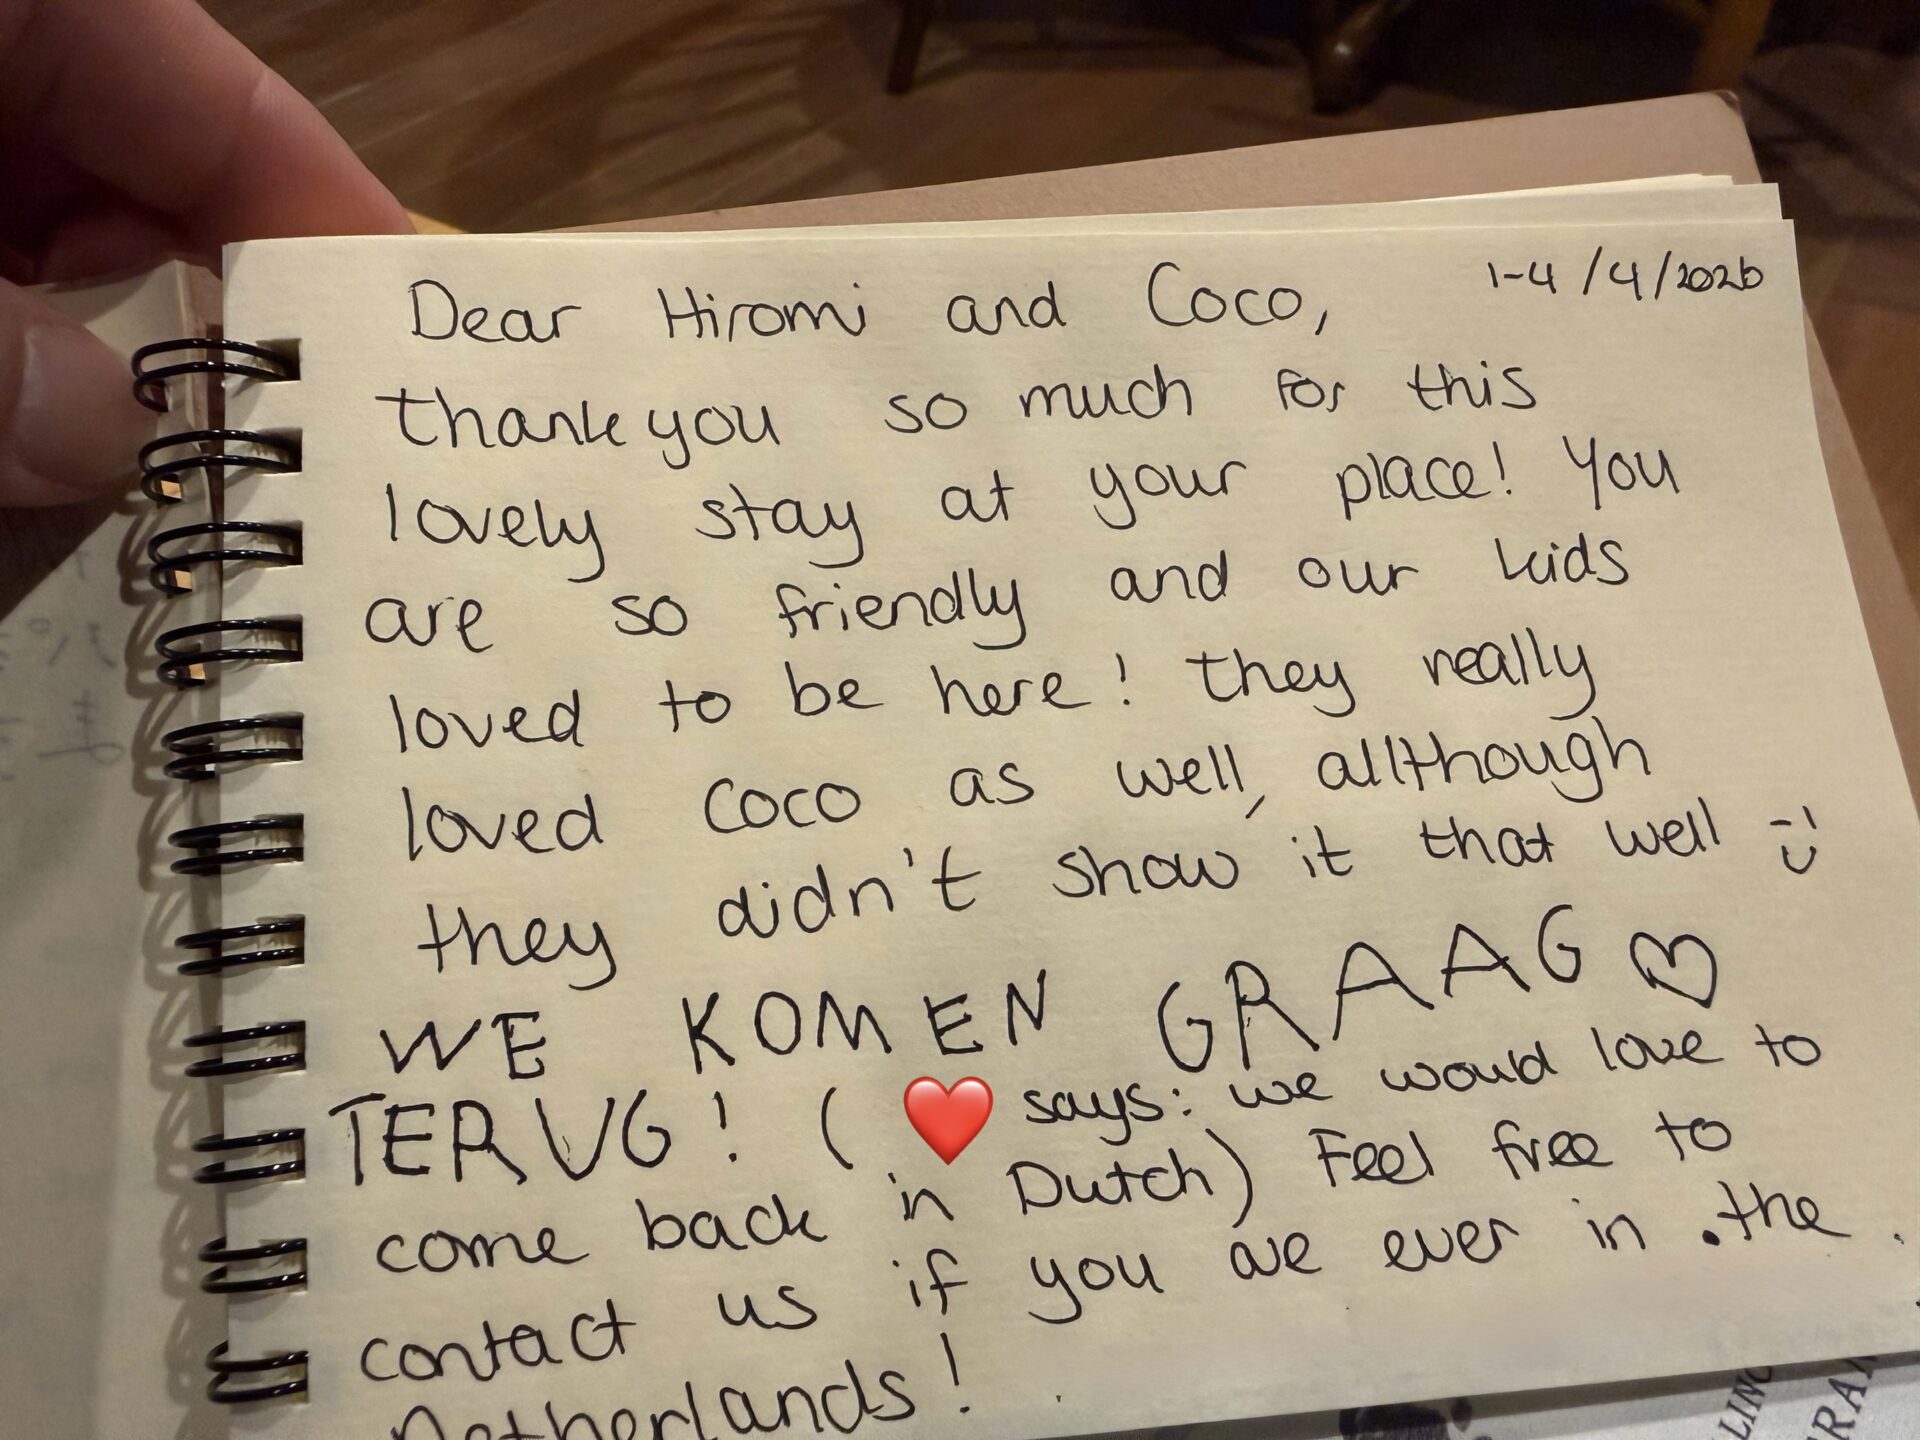 1-4/4/2026
Dear Hiromi and Coco,
thankyou so much for this
lovely stay at your place! You
are so friendly and our kids
loved to be here! they really
loved Coco as well, allthough
they didn't show it that well
WE KOMEN GRAAG ♡
TERUG! ( ❤️ says: we would love to
come back in Dutch) Feel free to
contact us if you are ever in the
Netherlands!